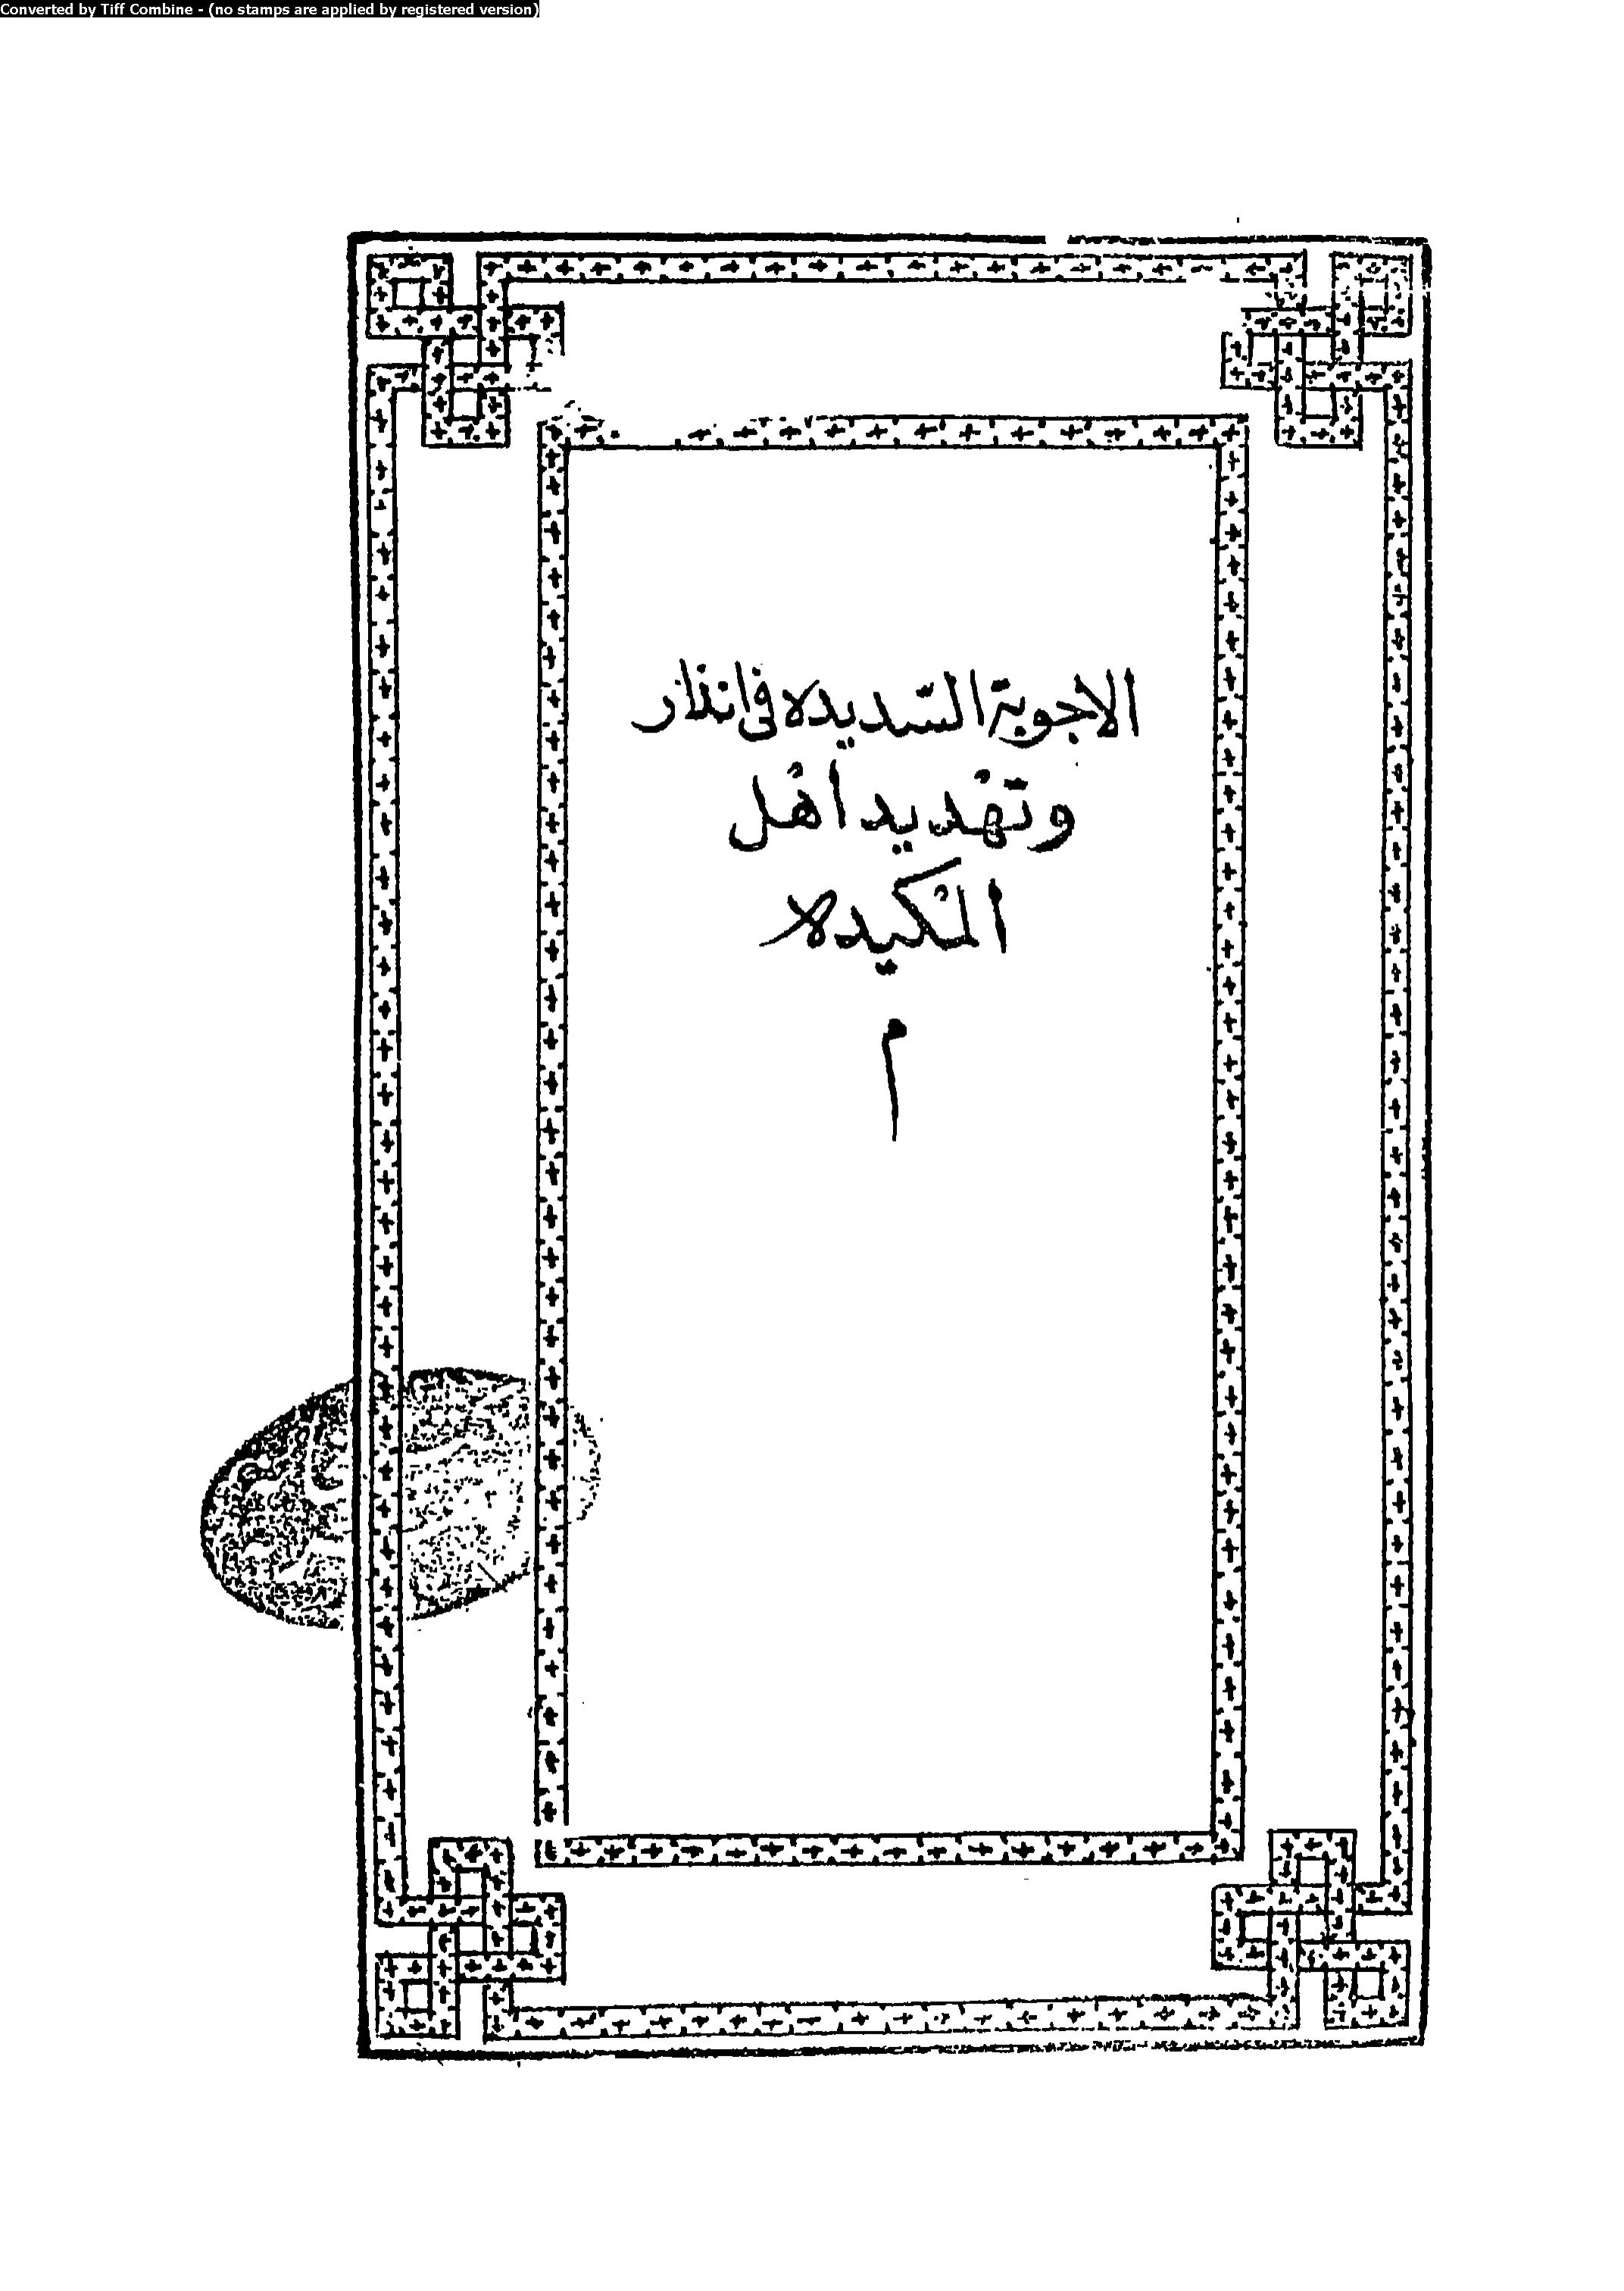 Converted by Tiff Combine - (no stamps are applied by registered version)
الاجوبة السّديده فى انذار
وتهديد اهل
المكيده
م